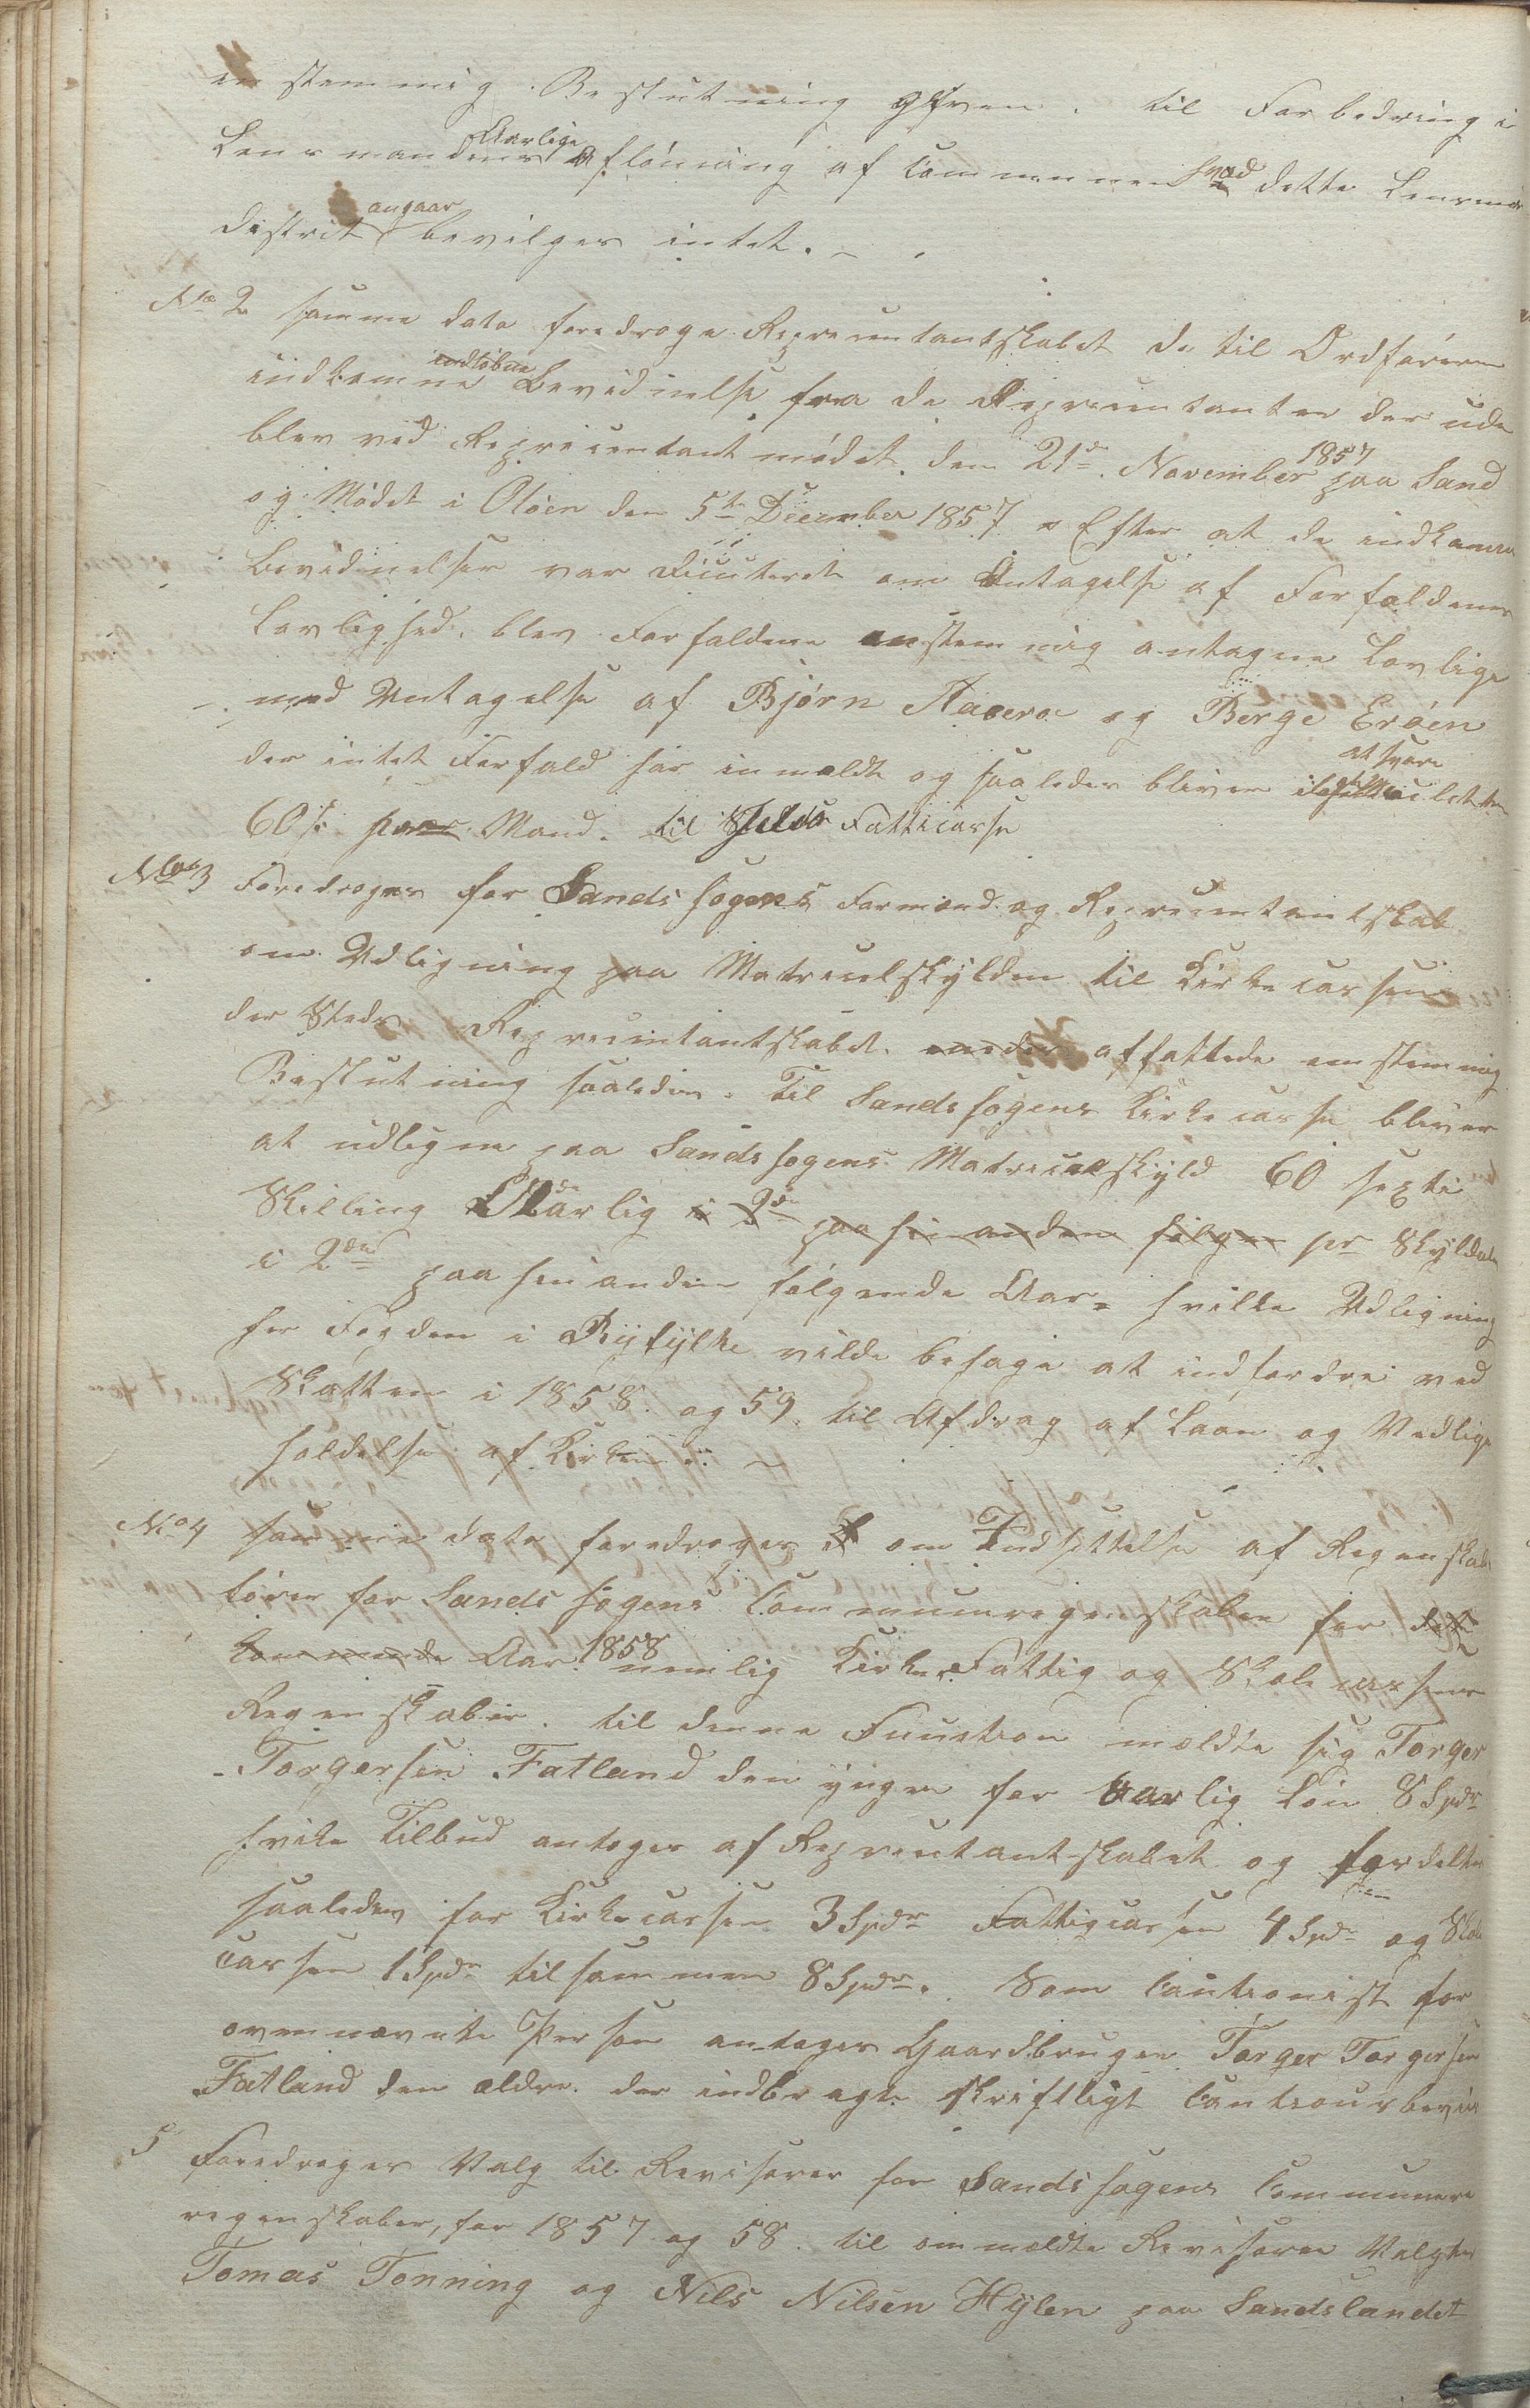 enstemmig Beslutning gifven. til Forbedring i
Lensmandens Aarlige Aflønning af Communen hvad dette Lensmds
distrit angaar bevilges intet. –
No 2 samme dato foredroges Repræsentantskabet de til Ordføreren
indkomne indløbne Bevidnelse fra de Repræsentanter der ude
blev ved Representantmødet den 21de November 1857 paa Sand
og Mødet i Oløen den 5te December 1857. Efter at de indkomne
Bevidnelser var Dicuteret om Antagelse af Forfaldenes
Lovlighed. blev Forfaldene enstemmig antagne Lovlige
med Untagelse af Bjørn Aaserø og Berge Erøen
der intet Forfald har inmeldt og saaledes bliver at svare
60 s. paar Mand. til Jelsa Fatticasse
No 3 Foredroges for Sands sogens Formænd og Repræsentantskab
om Udligning paa Matriculskylden til Kirkecassen
der Steds Repræsentantskabet. affattede enstemmig
Beslutning saaledes. Til Sands sogens Kirkecasse bliver
at udligne paa Sands sogens Matriculskyld 60 sexti
Skilling Aarlig i 2de paa hinanden følgen pr Skyldal
i 2de paa hinanden følgende Aar. hvilke Udligning
hr Fogden i Ryfylke vilde besøge at indfordre ved
Skatten i 1858. og 59. til Afdrag af Laan og Vedlige
holdelse af Kirken. –
No 4 samme dato foredroges om Indsettelse af Regenskabs
fører for Sands sogens Communeregenskaber for det
kommende Aar. 1858 nemlig Kirke, Fattig og Skolecassens
Regenskaber. til denne Function meldte sig Torger
Torgersen Fatland den yngre for Aarlig Løn 8 Spdr
hvilke Tilbud antoges af Repræsentantskabet og fordeltes
saaledes for Kirkecassen 3 Spdr Fattigcassen 4 Spdr og Skole
cassen 1 Spdr tilsammen 8 Spdr. Som Cautionist for
ovennævnte Person antoges Gaardbruger Torger Torgersen
Fatland den ældre. der indbragte skriftligt Cautionsbevis
5 Foredroges Valg til Revisorer for Sands sogens Commune
regenskaber, for 1857 og 58. til ommeldte Revisorer Valgtes
Tomas Tonning og Nils Nilsen Hylen paa Sandslandet